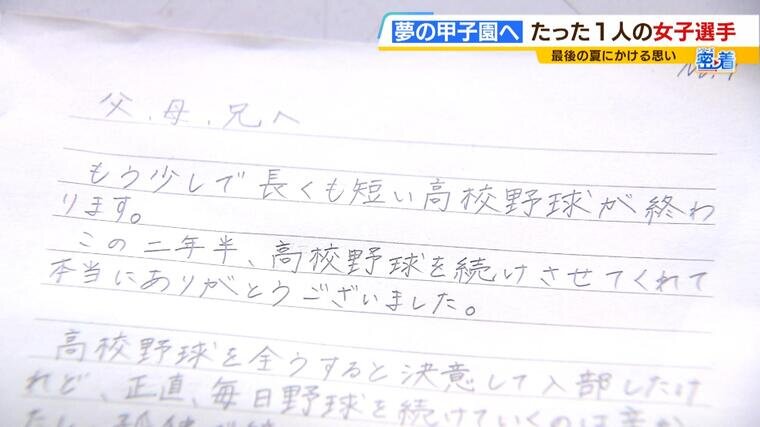 夢の甲子園へ たった1人の女子選手
最後の夏にかける思い 密着
父、母、兄へ
もう少しで長くも短い高校野球が終わ
ります。
この二年半、高校野球を続けさせてくれて
本当にありがとうございました。
高校野球を全うすると決意して入部したけ
れど、正直、毎日野球を続けていくのは辛か